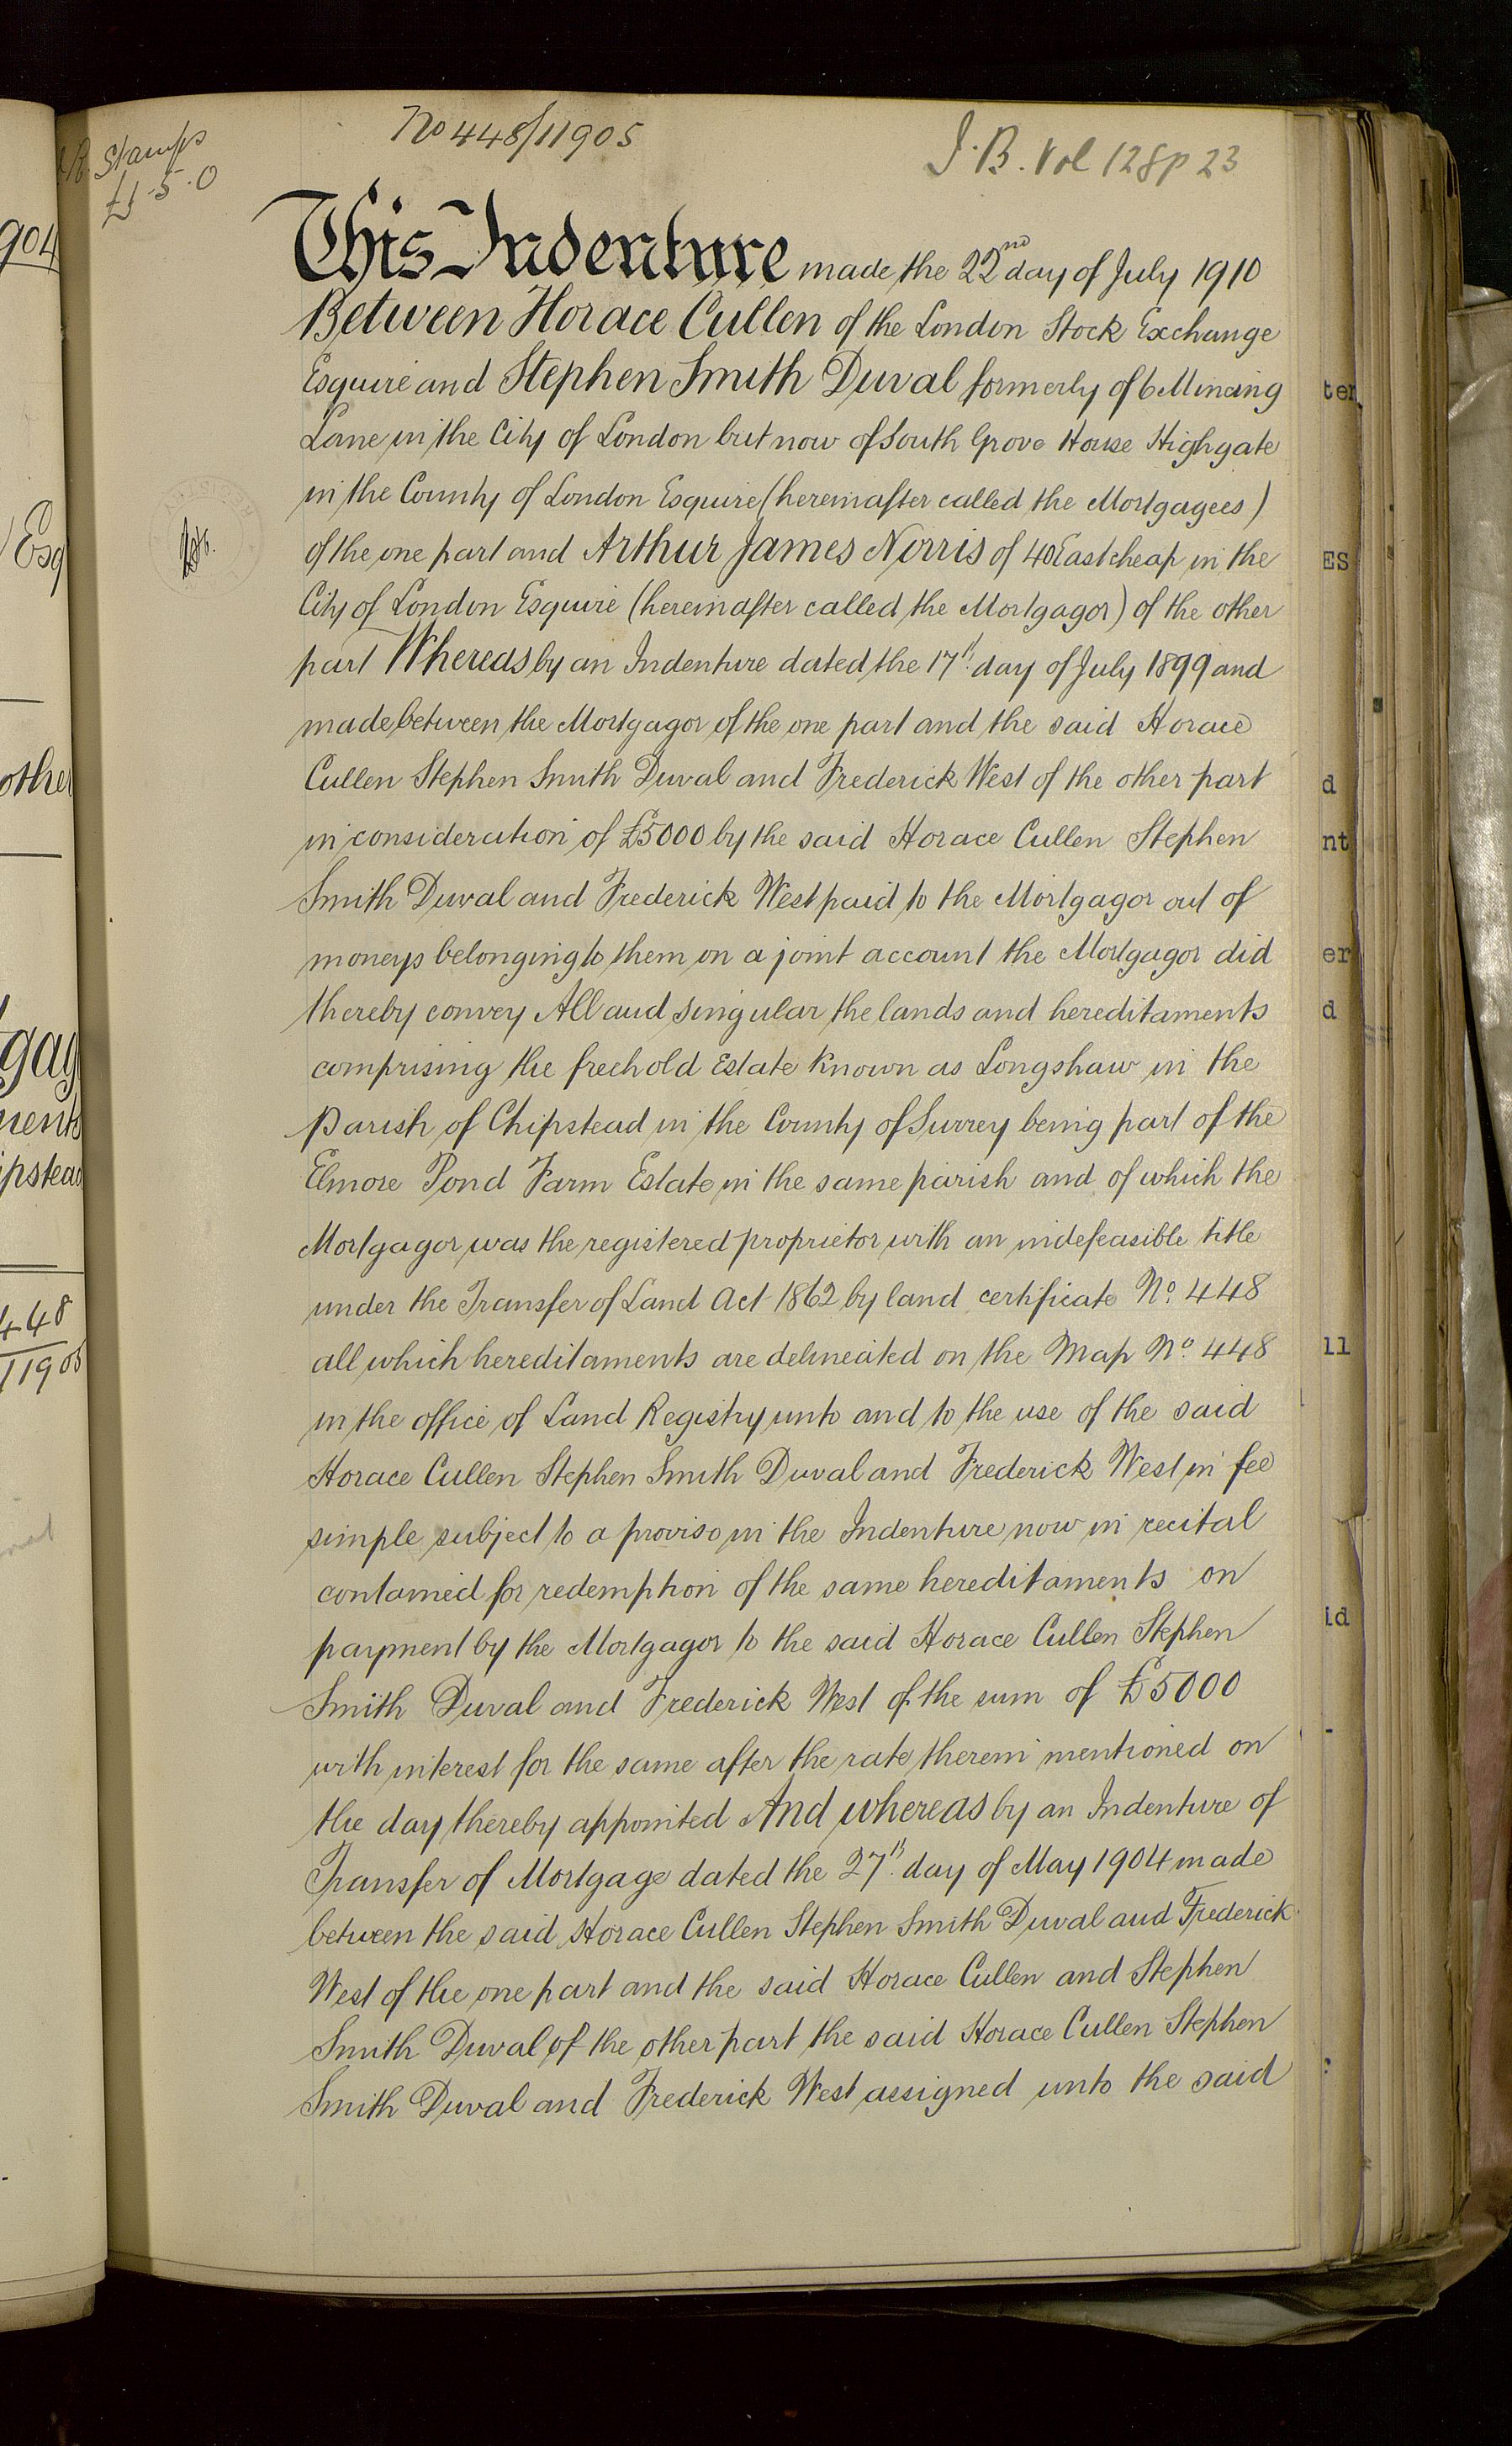 No 448/11905
I.B. Vol 128 p 23
R. Stamps
£1.5.0
This Indenture made the 22nd day of July 1910
Between Horace Cullen of the London Stock Exchange
Esquire and Stephen Smith Duval formerly of 6 Mincing
Lane in the City of London but now of South Grove House Highgate
in the County of London Esquire (hereinafter called the Mortgagees)
of the one part and Arthur James Norris of 40 Eastcheap in the
City of London Esquire (hereinafter called the Mortgagor) of the other
part Whereas by an Indenture dated the 17th day of July 1899 and
made between the Mortgagor of the one part and the said Horace
Cullen Stephen Smith Duval and Frederick West of the other part
in consideration of £5000 by the said Horace Cullen Stephen
Smith Duval and Frederick West paid to the Mortgagor out of
moneys belonging to them on a joint account the Mortgagor did
thereby convey All and singular the lands and hereditaments
comprising the freehold Estate known as Longshaw in the
parish of Chipstead in the County of Surrey being part of the
Elmore Pond Farm Estate in the same parish and of which the
Mortgagor was the registered proprietor with an indefeasible title
under the Transfer of Land Act 1862 by land certificate No. 448
all which hereditaments are delineated on the Map No. 448
in the office of Land Registry unto and to the use of the said
Horace Cullen Stephen Smith Duval and Frederick West in fee
simple subject to a proviso in the Indenture now in recital
contained for redemption of the same hereditaments on
payment by the Mortgagor to the said Horace Cullen Stephen
Smith Duval and Frederick West of the sum of £5000
with interest for the same after the rate therein mentioned on
the day thereby appointed And whereas by an Indenture of
Transfer of Mortgage dated the 27th day of May 1904 made
between the said Horace Cullen Stephen Smith Duval and Frederick
West of the one part and the said Horace Cullen and Stephen
Smith Duval of the other part the said Horace Cullen Stephen
Smith Duval and Frederick West assigned unto the said